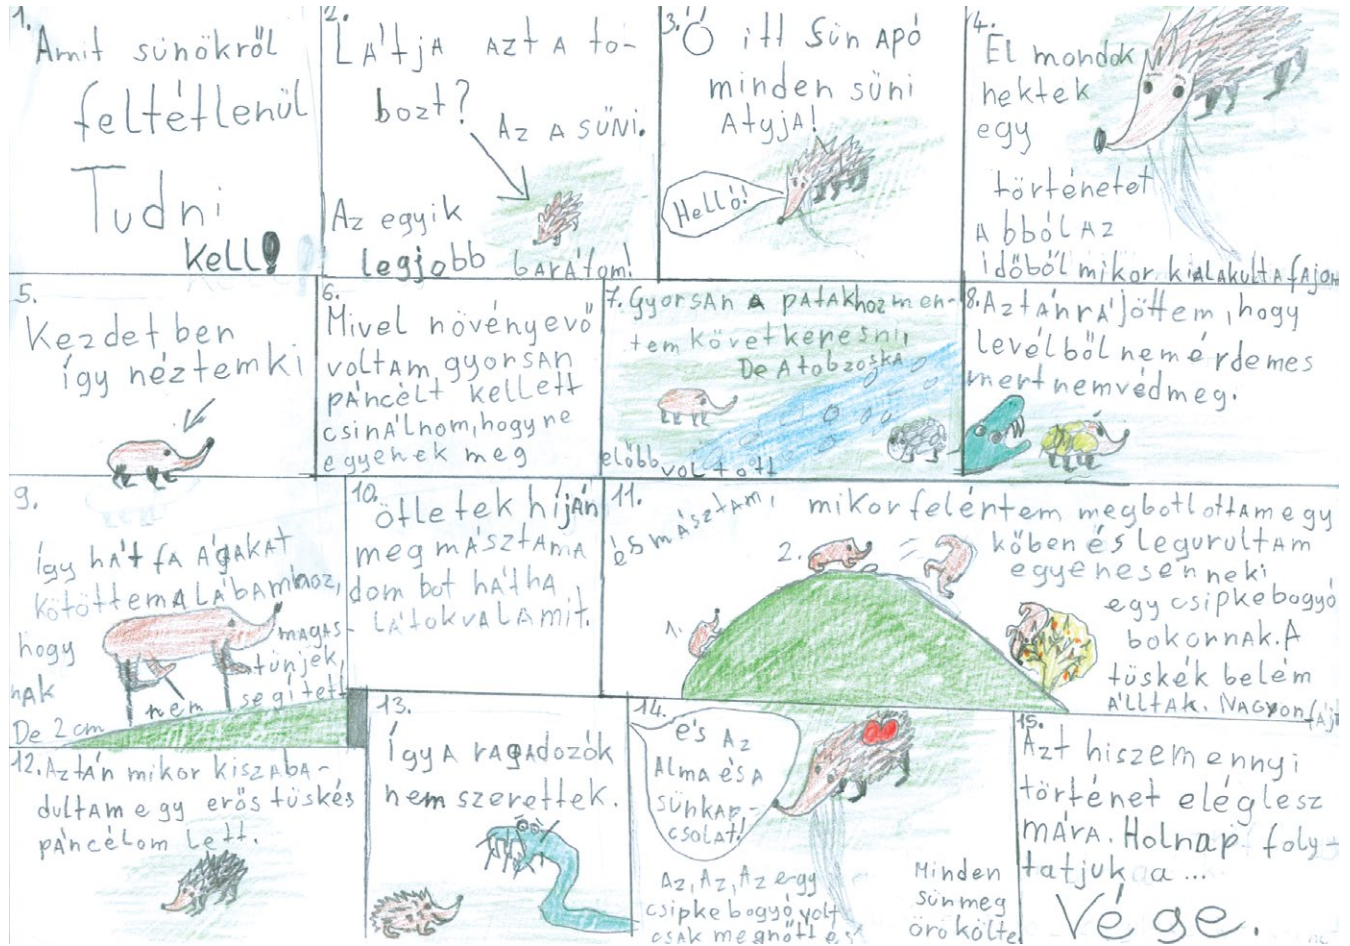 1.
Amit sünökről
feltétlenül
Tudni
kell!
2.
Látja azt a to-
bozt?
Az a süni.
Az egyik
legjobb barátom!
3. Ó itt Sün apó
minden süni
atyja!
Helló!
4.
El mondok
nektek
egy
történetet
abból az
időből mikor kialakult a fajom
5.
Kezdetben
így néztem ki
6.
Mivel növényevő
voltam gyorsan
páncélt kellett
csinálnom, hogy ne
egyenek meg
7. Gyorsan a patakhoz men-
tem követ keresni,
De A tobzoska
előbb volt ott
8. Aztán rájöttem, hogy
levélből nem érdemes
mert nem véd meg.
9.
Így hát fa ágakat
kötöttem a lábamhoz,
hogy magas-
nak tűnjek,
De 2 cm nem segített
10.
ötletek híján
meg másztam a
dombot hátha
látok valamit.
11.
és másztam, mikor felértem megbotlottam egy
kőben és legurultam
egyenesen neki
egy csipkebogyó
bokornak. A
tüskék belém
álltak. Nagyon fájt
1.
2.
12. Aztán mikor kiszaba-
dultam egy erős tüskés
páncélom lett.
13.
Így a ragadozók
nem szerettek.
14.
és az
Alma és a
sünkap-
csolat!
Az, Az, Az egy
csipkebogyó volt
csak megnőtt és
Minden
sün meg
örökölte
15.
Azt hiszem ennyi
történet elég lesz
mára. Holnap foly-
tatjuk a ...
Vége.